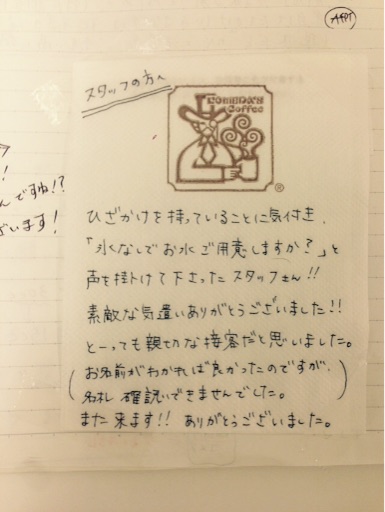 AFPT
スタッフの方へ
KOMEDA'S
Coffee
®
!
んですね!?
ざいます!
ひざかけを持っていることに気付き、
「氷なしでお水ご用意しますか?」と
声を掛けて下さったスタッフさん!!
素敵な気遣いありがとうございました!!
とーっても親切な接客だと思いました。
(お名前がわかれば良かったのですが、
名札確認できませんでした。)
また来ます!! ありがとうございました。